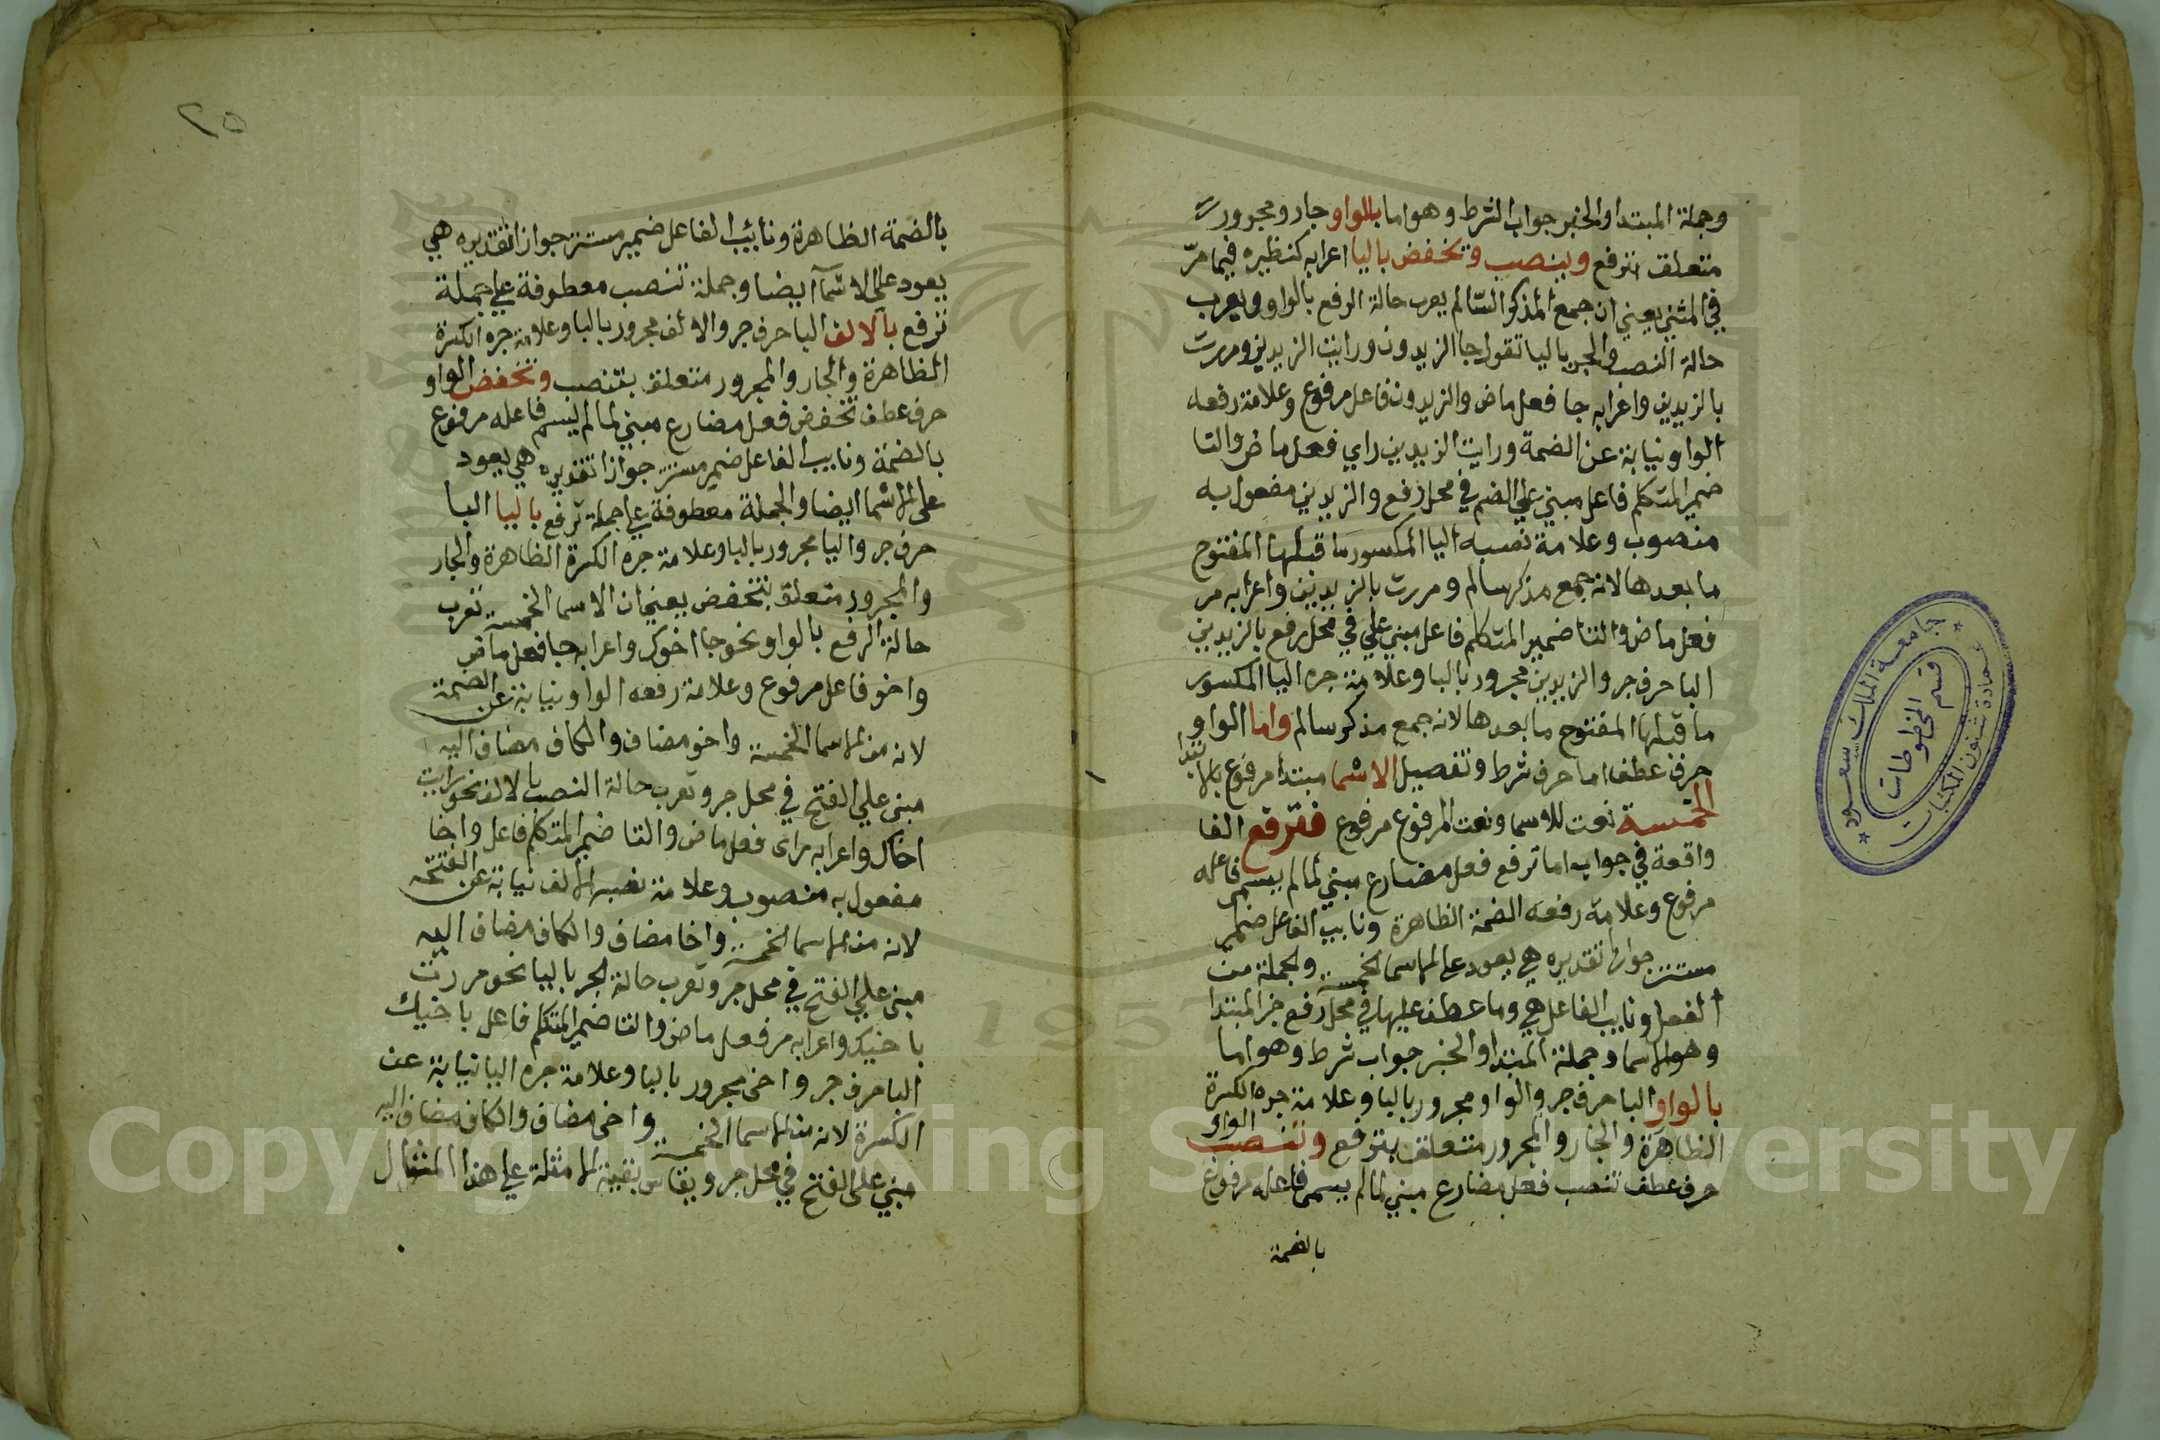 وجملة المبتدا والخبر جواب الشرط وهو اما بالواو جار ومجرور
متعلق بترفع وينصب وتخفض باليا اعرابه كنظيره فيما مرّ
في المثني يعني ان جمع المذكر السّالم يعرب حالة الرفع بالواو ويعرب
حالة النصب والجر باليا تقول جا الزيدون ورايت الزيدين ومررت
بالزيدين واعرابه جا فعل ماض والزيدون فاعل مرفوع وعلامة رفعه
الواو نيابة عن الضمة ورايت الزيدين راي فعل ماض والتا
ضمير المتكلم فاعل مبني علي الضم في محل رفع والزيدين مفعول به
منصوب وعلامة نصبه اليا المكسور ما قبلها المفتوح
ما بعدها لانه جمع مذكر سالم ومررت بالزيدين واعرابه مر
فعل ماض والتا ضمير المتكلم فاعل مبني علي في محل رفع بالزيدين
البا حرف جر والزيدين مجرور بالبا وعلامة جره اليا المكسور
ما قبلها المفتوح ما بعدها لانه جمع مذكر سالم واما الواو
حرف عطف اما حرف شرط وتفصيل الاسما مبتدا مرفوع بالابتدا
الخمسة نعت للاسما ونعت المرفوع مرفوع فترفع الفا
واقعة في جواب اما ترفع فعل مضارع مبني لما لم يسم فاعله
مرفوع وعلامة رفعه الضمة الظاهرة ونايب الفاعل ضمير
مستتر جوازا تقديره هي يعود علي الاسما الخمسة والجملة من
الفعل ونايب الفاعل هي وما عطف عليها في محل رفع خبر المبتدا
وهو الاسما وجملة المبتدا والخبر جواب شرط وهو اما
بالواو البا حرف جر والواو مجرور بالبا وعلامة جره الكسرة
الظاهرة والجار والمجرور متعلق بترفع وتنصب الواو
حرف عطف تنصب فعل مضارع مبني لما لم يسمي فاعله مرفوع
بالضمة
٢٥
بالضمة الظاهرة ونائب الفاعل ضمير مستتر جوازا تقديره هي
يعود علي الاسمآ ايضا وجملة تنصب معطوفة علي جملة
ترفع بالالف البا حرف جر والالف مجرور بالبا وعلامة جره الكسرة
الظاهرة والجار والمجرور متعلق بتنصب وتخفض الواو
حرف عطف تخفض فعل مضارع مبني لما لم يسم فاعله مرفوع
بالضمة ونايب الفاعل ضمير مستتر جوازا تقديره هي يعود
علي الاسما ايضا والجملة معطوفة علي جملة ترفع باليا البا
حرف جر واليا مجرور بالبا وعلامة جره الكسرة الظاهرة والجار
والمجرور متعلق بتخفض يعني ان الاسما الخمسة تعرب
حالة الرفع بالواو نحو جا اخوك واعرابه جا فعل ماض
واخو فاعل مرفوع وعلامة رفعه الواو نيابة عن الضمة
لانه من الاسما الخمسة واخو مضاف والكاف مضاف اليه
مبني علي الفتح في محل جر وتعرب حالة النصب بالالف نحو رايت
اخاك واعرابه راى فعل ماض والتا ضمير المتكلم فاعل واخا
مفعول به منصوب وعلامة نصبه الالف نيابة عن الفتحة
لانه من الاسما الخمسة واخا مضاف والكاف مضاف اليه
مبني علي الفتح في محل جر وتعرب حالة الجر باليا نحو مررت
باخيك واعرابه مر فعل ماض والتا ضمير المتكلم فاعل باخيك
البا حرف جر واخي مجرور بالبا وعلامة جره اليا نيابة عن
الكسرة لانه من الاسما الخمسة واخي مضاف والكاف مضاف اليه
مبني علي الفتح في محل جر ويقاس بقية الامثلة علي هذا المثال
جامعة الملك سعود
قسم المخطوطات
عمادة شئون المكتبات
1957
Copyright © King Saud University